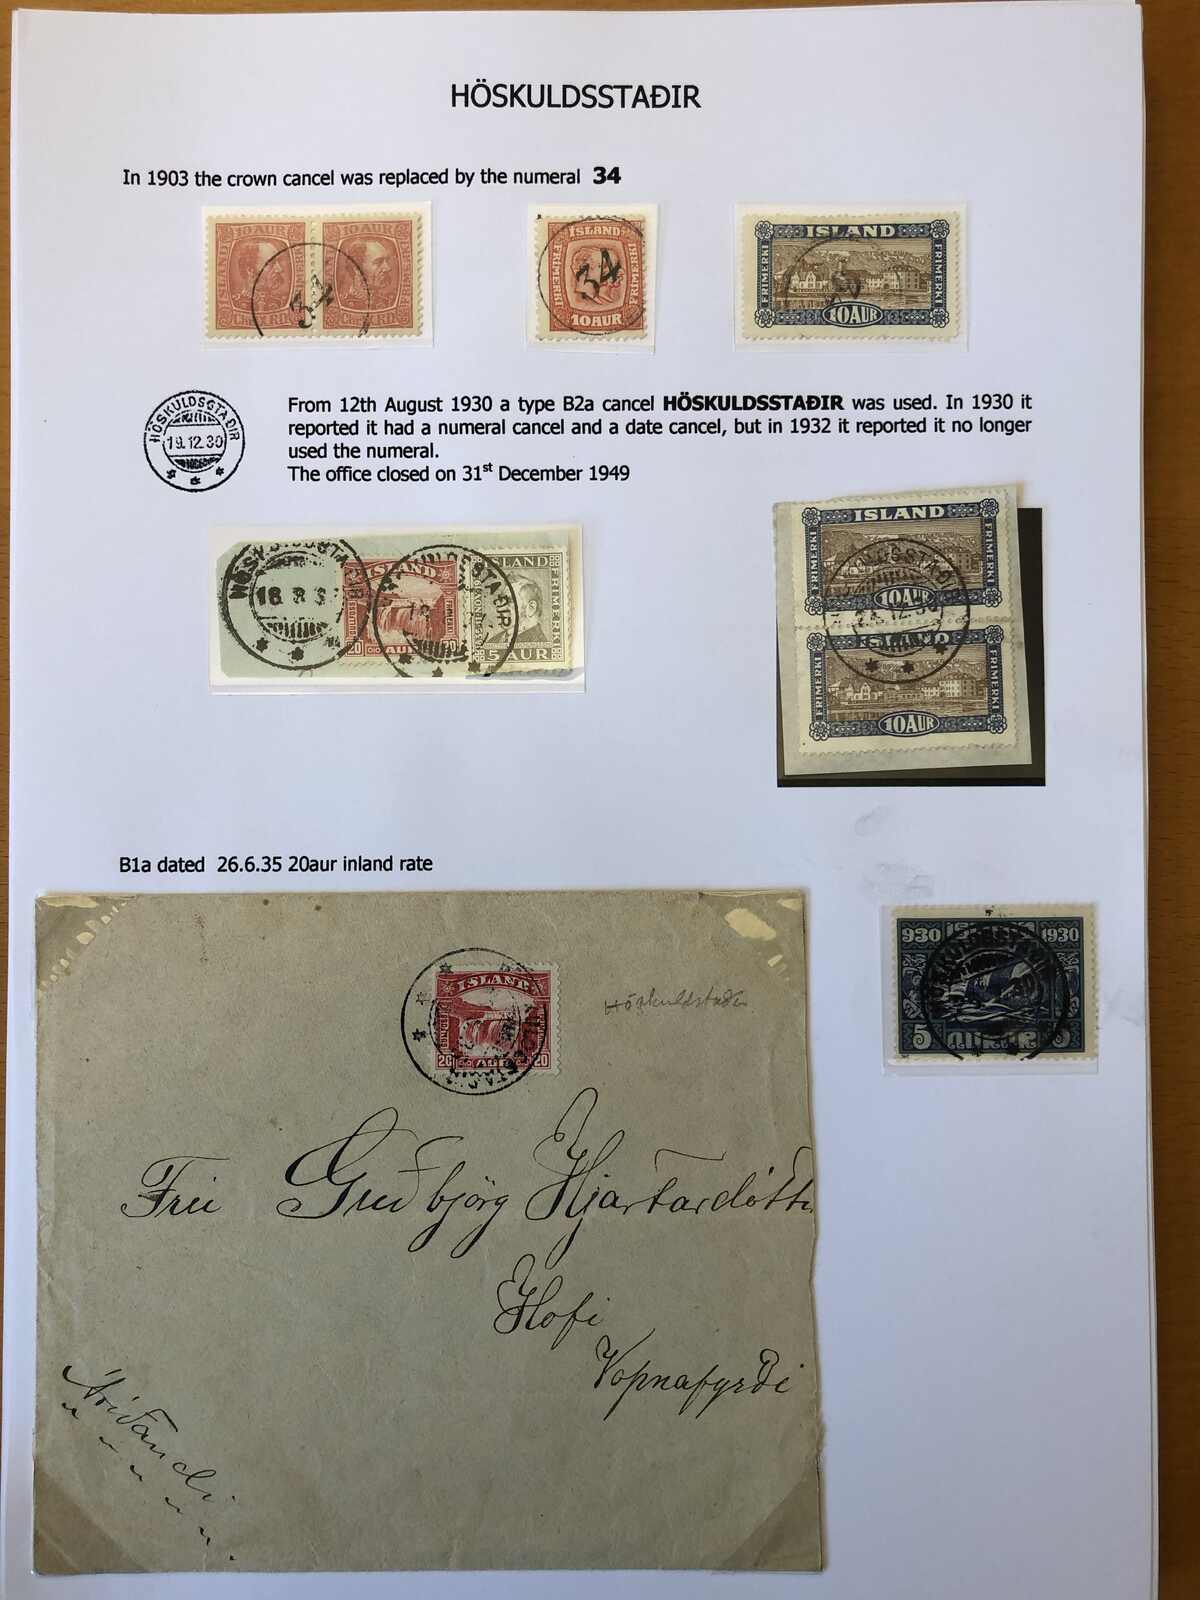 HÖSKULDSSTAÐIR
In 1903 the crown cancel was replaced by the numeral 34
10 AUR 10 AUR
34
ISLAND
FRIMERKI FRIMERKI
34
10 AUR
ISLAND
FRIMERKI FRIMERKI
10 AUR
HÖSKULDSSTAÐIR
19.12.30
From 12th August 1930 a type B2a cancel HÖSKULDSSTAÐIR was used. In 1930 it
reported it had a numeral cancel and a date cancel, but in 1932 it reported it no longer
used the numeral.
The office closed on 31st December 1949
ISLAND
20 AUR 20
ISLAND
FRIMERKI
5 AUR
ISLAND
FRIMERKI FRIMERKI
10 AUR
ISLAND
FRIMERKI FRIMERKI
10 AUR
B1a dated 26.6.35 20aur inland rate
930 1930
5 5
ISLAND
GULLFOSS
20 AUR 20
Höskuldstaðir
Frú Guðbjörg Hjartardótti
Hofi
Vopnafyrði
Áríðandi